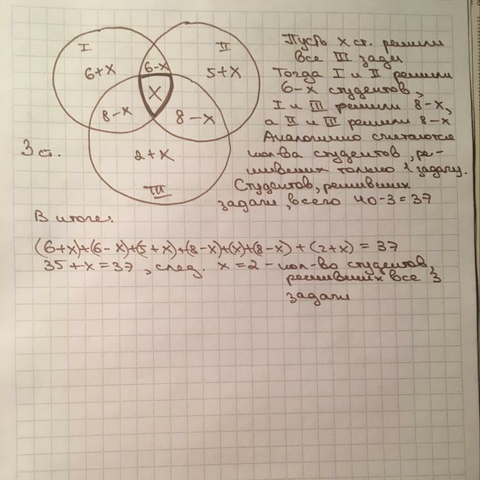 I
II
6+x
6-x
5+x
x
8-x
8-x
3 ст.
2+x
III
Пусть x ст. решили
все III зади
Тогда I и II решили
6-x студентов,
I и III решили 8-x,
а II и III решили 8-x
Аналогично считаются
кол-ва студентов, ре-
шивших только 1 задачу.
Студентов, решивших
задачи, всего 40-3=37
В итоге:
(6+x)+(6-x)+(5+x)+(8-x)+(x)+(8-x)+(2+x)=37
35+x=37, след. x=2 - кол-во студентов,
решивших все 3
задачи